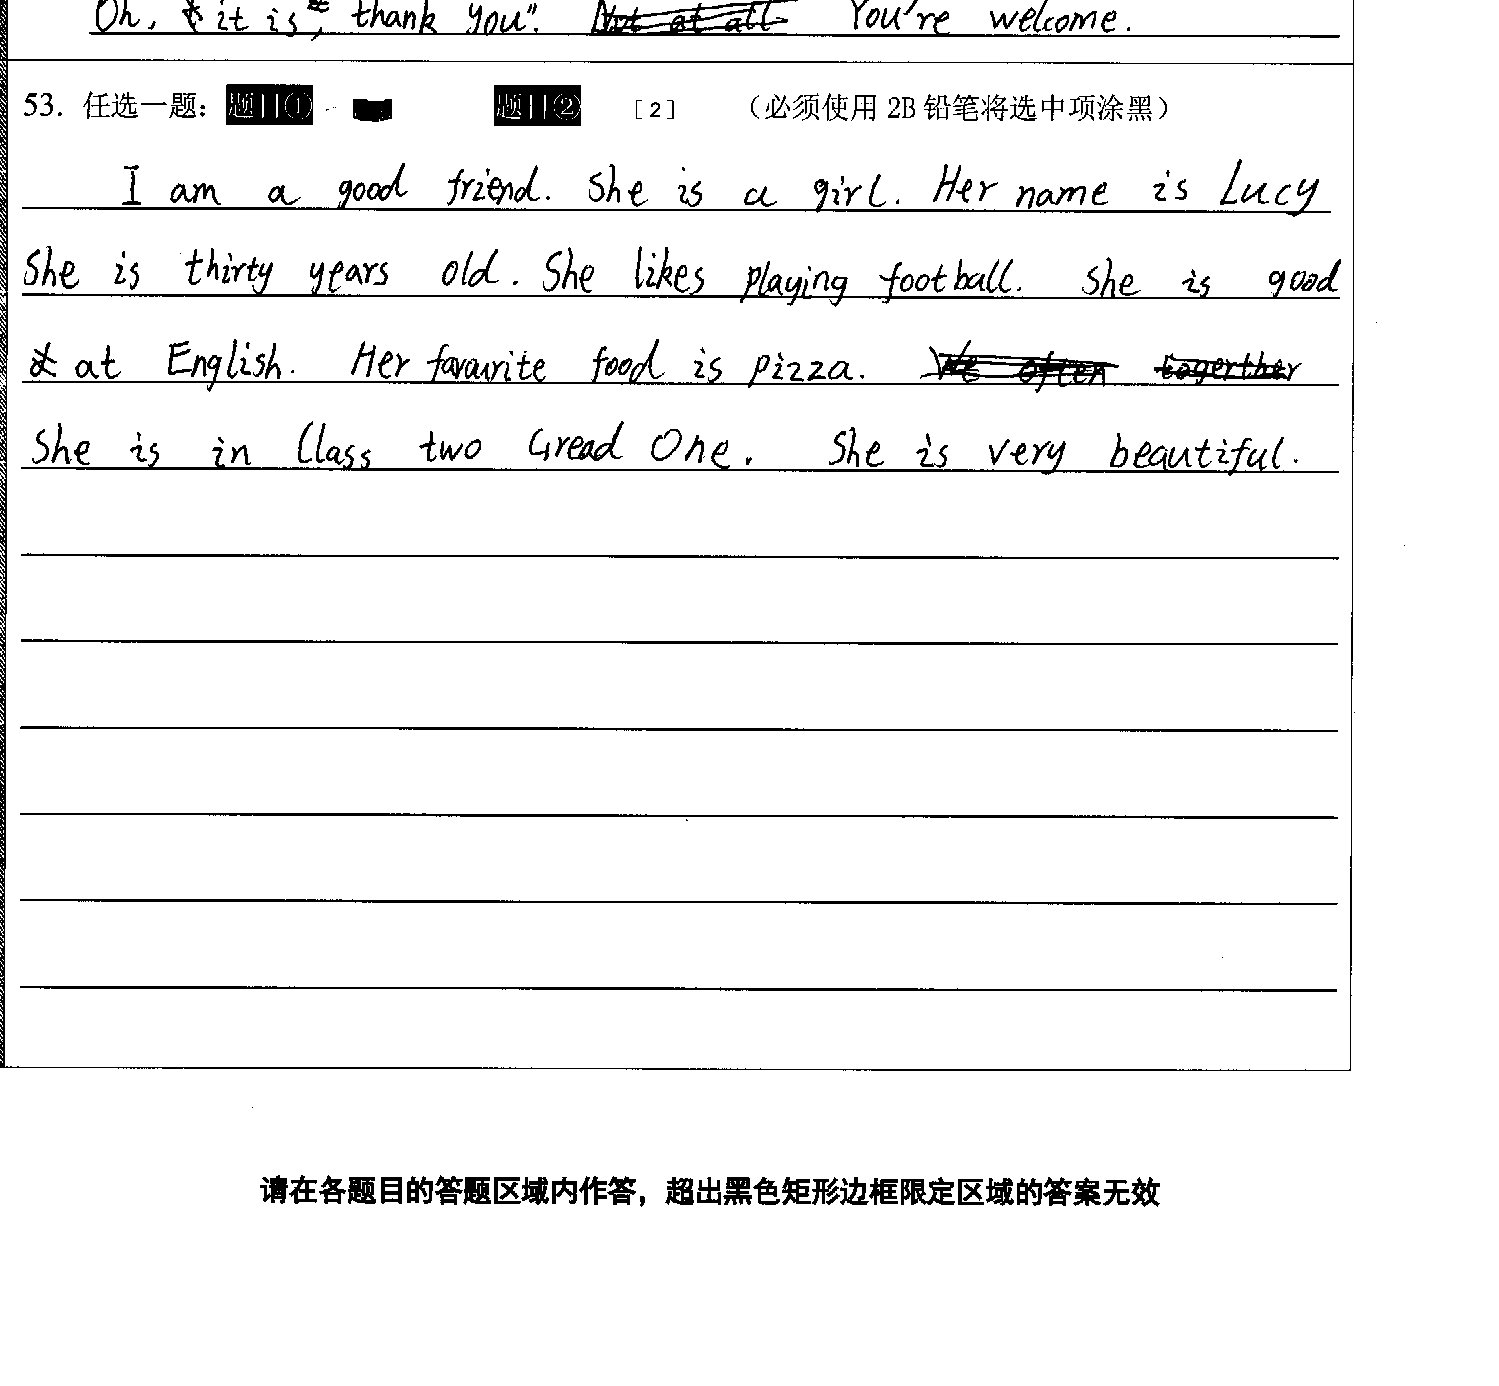 Oh, it is, thank you". Not at all You're welcome.
53. 任选一题: 题目① 题目② [2] (必须使用 2B 铅笔将选中项涂黑)
I am a good friend. She is a girl. Her name is Lucy
She is thirty years old. She likes playing football. She is good
at English. Her favaurite food is pizza. We often togerther
She is in Class two Gread One. She is very beautiful.
请在各题目的答题区域内作答，超出黑色矩形边框限定区域的答案无效